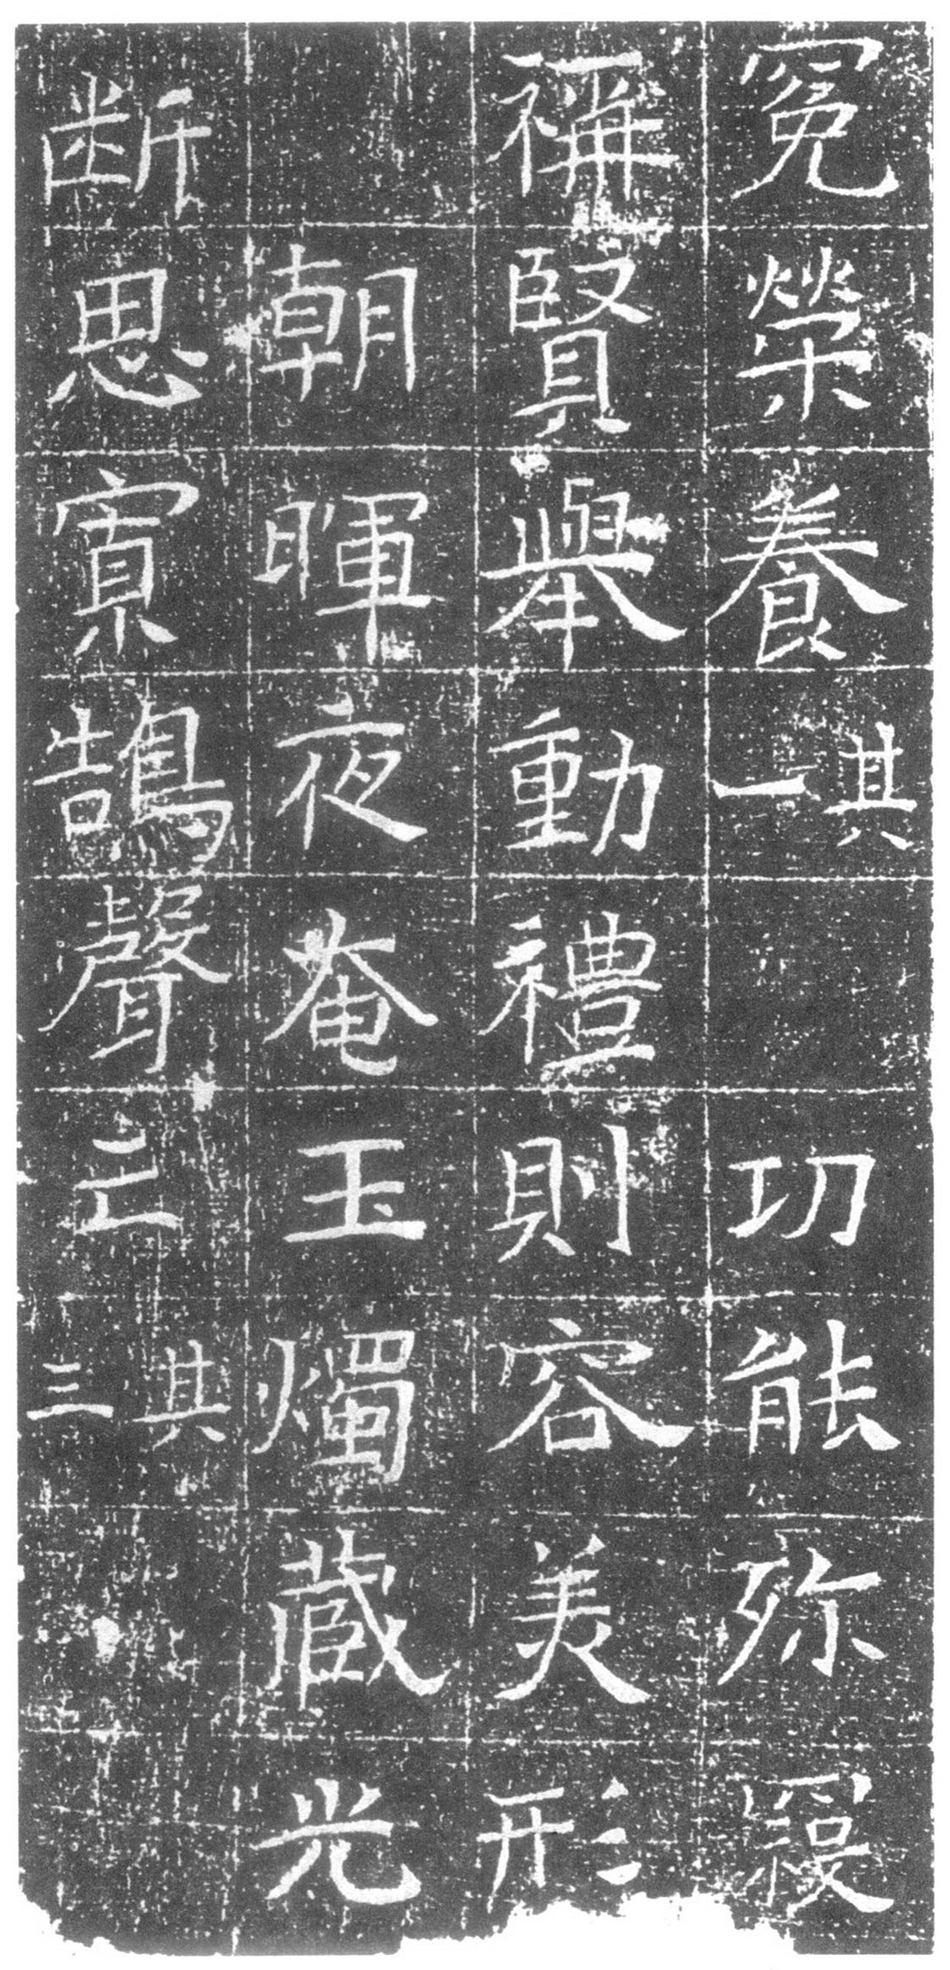 冕榮養其一功能弥
稱賢舉動禮則容美形
朝暉夜奄玉燭蔵光
断思寡鵠聲亡其三